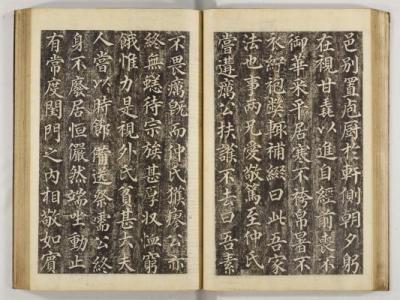 邑別置庖厨於軒側朝夕躬
在視甘毳以進自經前喪不
御華采平居寒不袴帛暑不
衣絺袍裳輒補綴曰此吾家
法也事兩兄愛敬篤至仲氏
嘗遘癘公扶護不去曰吾素
不畏癘旣而仲氏獲瘳公亦
終無恙待宗族甚厚収恤窮
餓惟力是視外氏貧甚大夫
人嘗以時節薦送祭需公終
身不廢居恒儼然端坐動止
有常度閨門之内相敬如賓